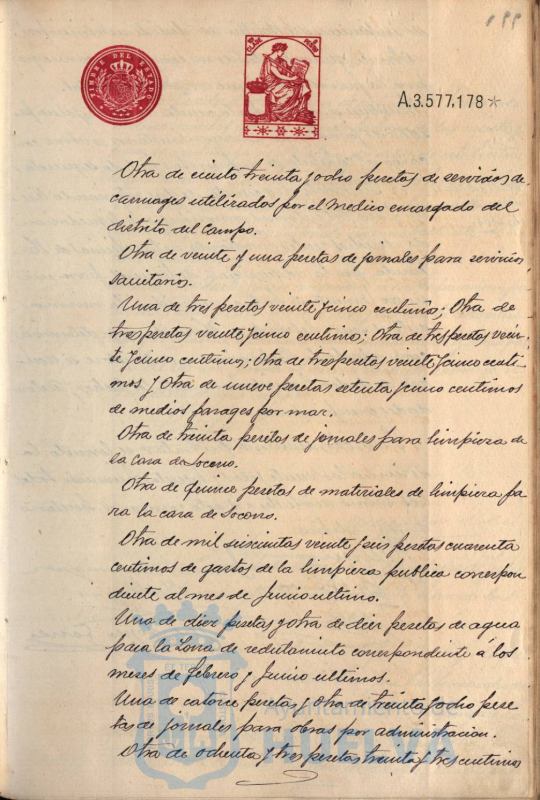 199
TIMBRE DEL ESTADO
A.3.577,178*
Otra de ciento treinta y ocho pesetas de servicios de
carruages utilizados por el Medico encargado del
distrito del Campo.
Otra de veinte y una pesetas de jornales para servicios
sanitarios.
Una de tres pesetas veinte y cinco centimos; Otra de
tres pesetas veinte y cinco centimos; Otra de tres pesetas vein-
te y cinco centimos; Otra de tres pesetas veinte y cinco centi-
mos y Otra de nueve pesetas setenta y cinco centimos
de medios pasages por mar.
Otra de treinta pesetas de jornales para limpieza de
la casa de Socorro.
Otra de quince pesetas de materiales de limpieza pa
ra la casa de Socorro.
Otra de mil seiscientas veinte y seis pesetas cuarenta
centimos de gastos de la limpieza publica correspon
diente al mes de Junio ultimo.
Una de diez pesetas y otra de diez pesetas de agua
para la Zona de reclutamiento correspondiente á los
meses de febrero y Junio ultimos.
Una de catorce pesetas y Otra de treinta y ocho pese
tas de jornales para obras por administracion.
Otra de ochenta y tres pesetas treinta y tres centimos
Ayuntamiento
HUELVA